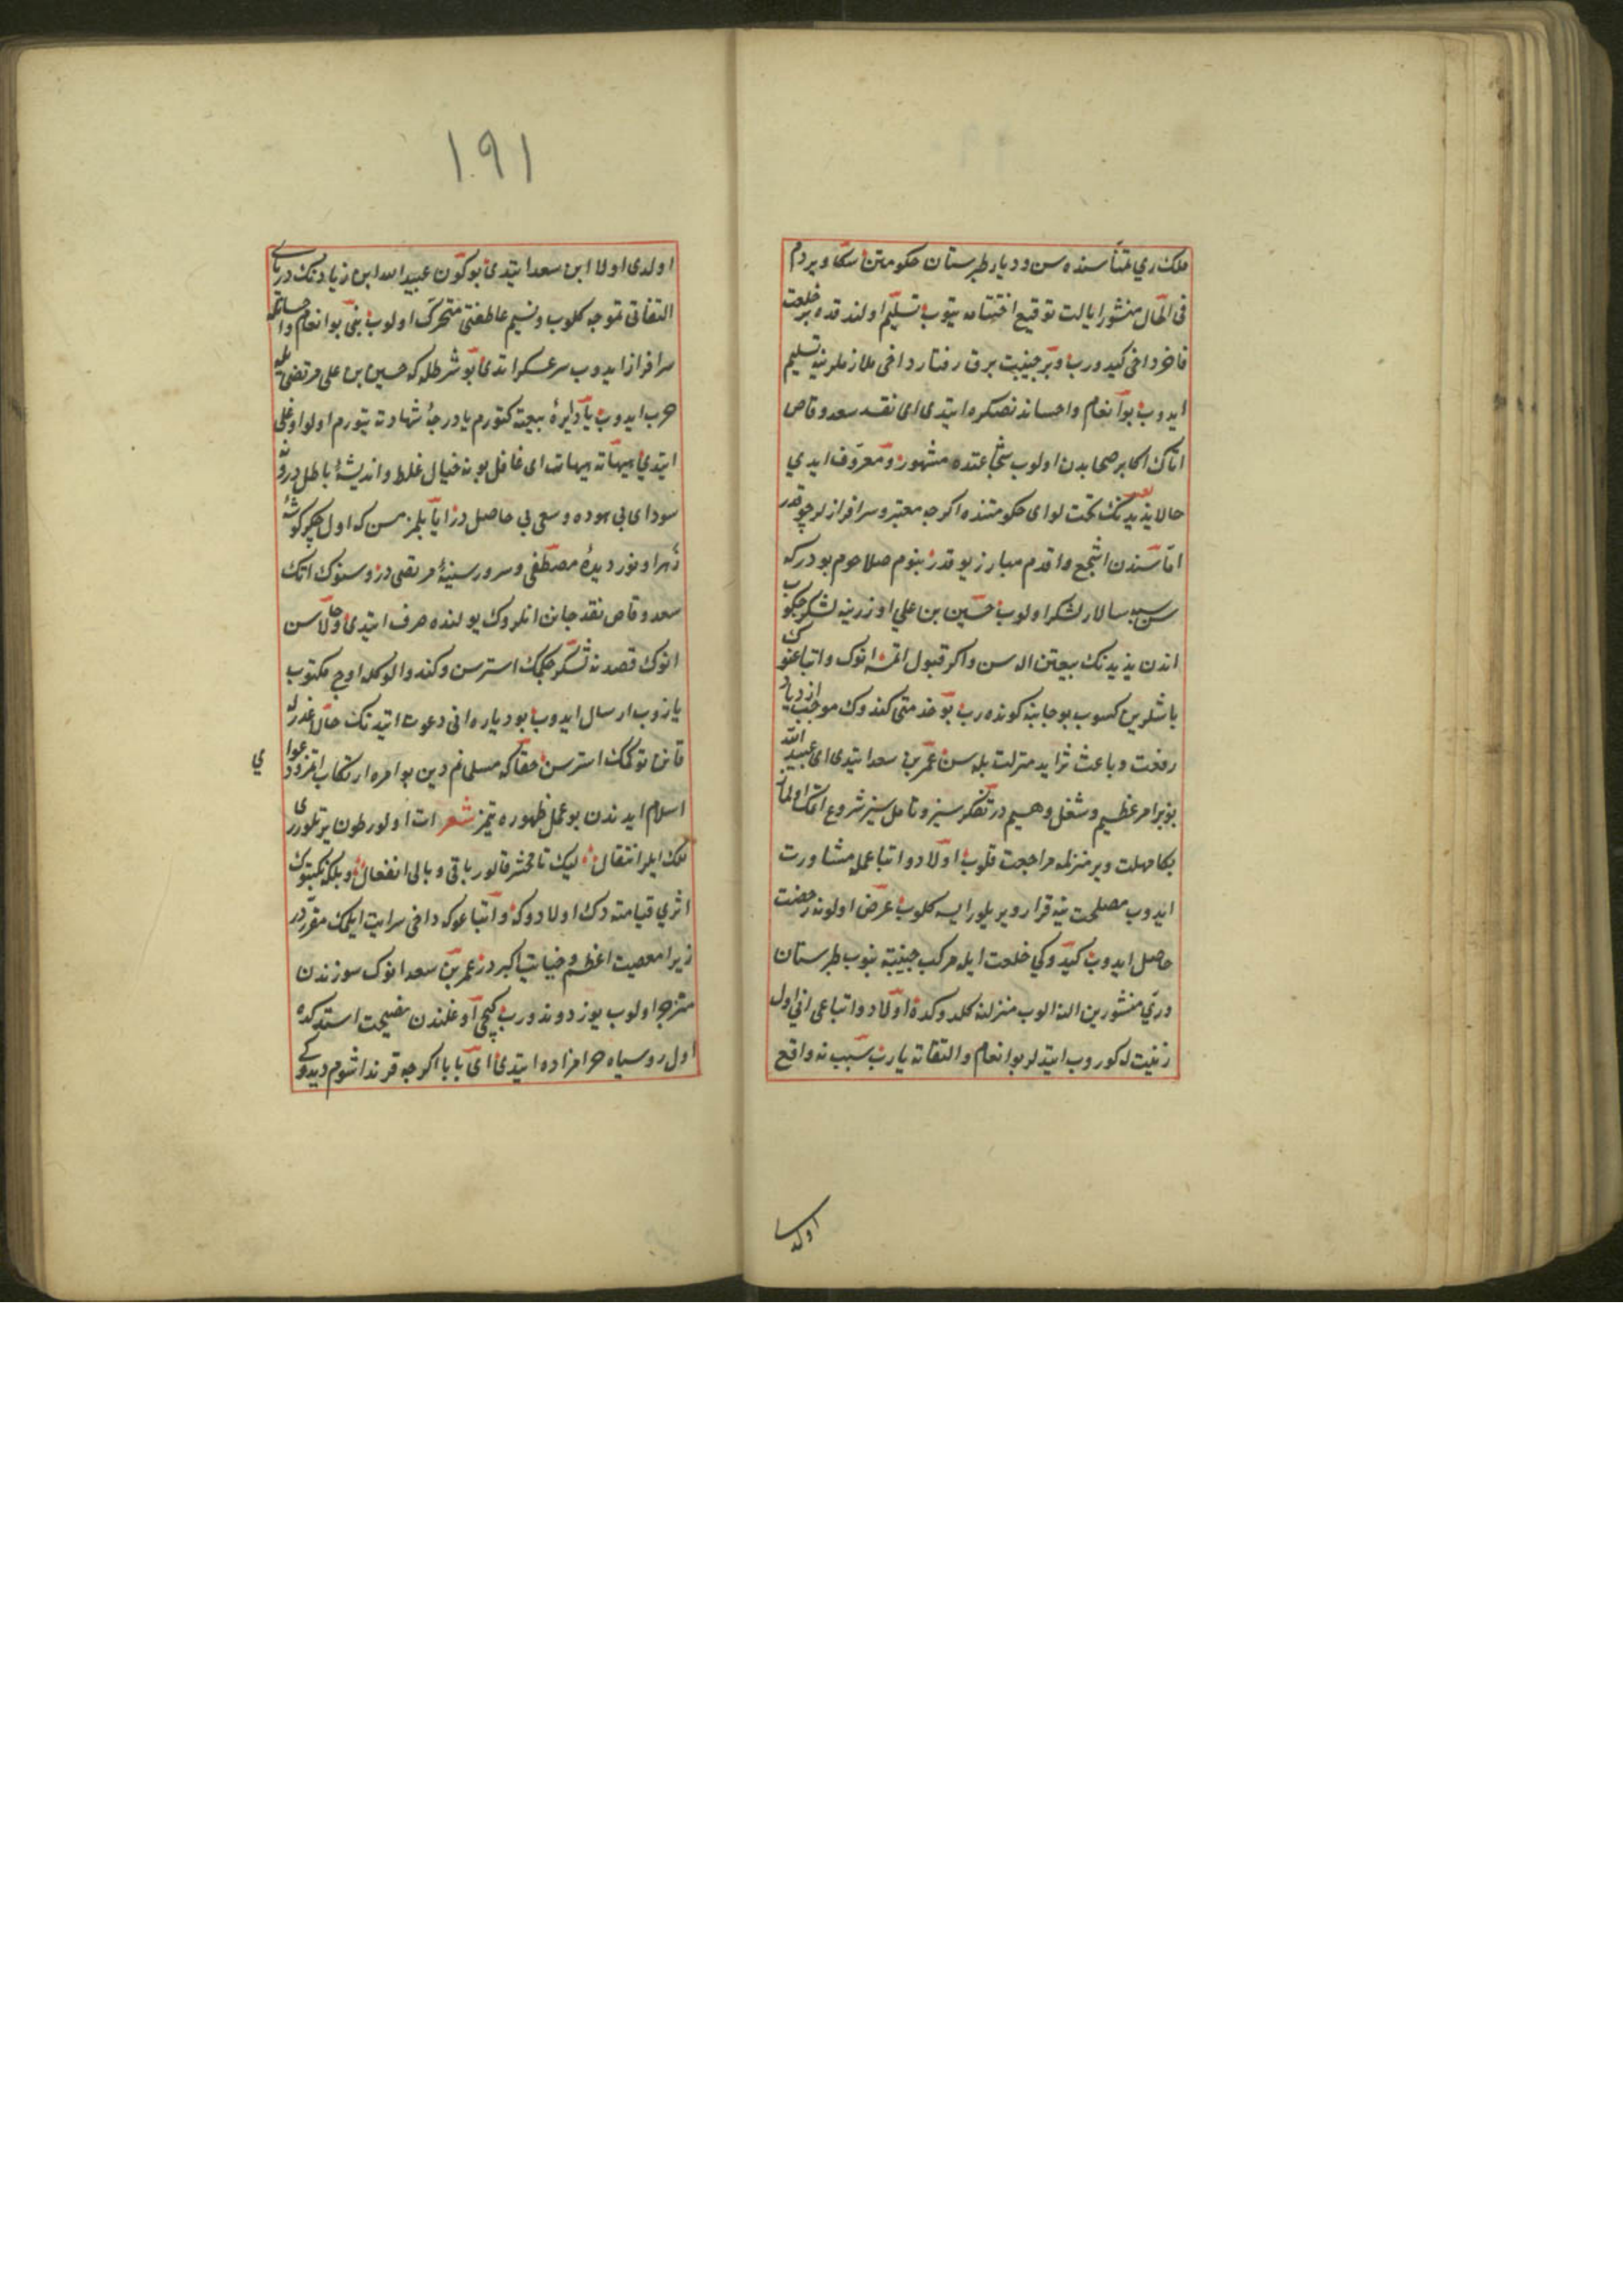 ملك ري تمناسنده سن و ديار طبرستان حكومتن سكا ويردم
فى الحال منشور ايالت توقيع اختتامه يتوب تسليم اولندقده بر خلعت
فاخر داخى كيدورب و بر جنيبت برق رفتار داخى ملازملرينه تسليم
ايدوب بو انعام و احساندنصكره ايتدى اى نقد سعد وقاص
اتاك اكابر صحابه‌دن اولوب شجاعتده مشهور و معروف ايدي
حالا يزيدنك تحت لواى حكومتنده اكرچه معتبر و سرافرازلر چوقدر
اما سندن اشجع و اقدم مبارز يوقدر بنوم صلاحوم بودر كه
سن سپه سالار لشكر اولوب حسين بن علي اوزرينه لشكر چكوب
اندن يزيدنك بيعتن اله سن و اكر قبول اتمسه انوك و اتباعنوك
باشلرين كسوب بو جانبه كوندره‌رب بو خدمتى كندوك موجب ازدياد
رفعت و باعث تزايد منزلت بله سن عمر بن سعد ايتدى اى عبيد الله
بو بر امر عظيم و شغل وهيم در تفكرسيز و تاملسيز شروع اتمك اولماز
بكا مهلت وير منزلمه مراجعت قلوب اولاد و اتباعمله مشاورت
ايدوب مصلحت نيه قرار ويريلور ايسه كلوب عرض اولونه رخصت
حاصل ايدوب كيدوكي خلعت ايله مركب جنيبته بنوب طبرستان
و ري منشورين النه الوب منزلنه كلدوكده اولاد و اتباعى انى اول
زينيتله كوروب ايتديلر بو انعام و التفاته يارب سبب نه واقع
اولدى
١٩١
اولدى اولا ابن سعد ايتدى بو كون عبيد الله ابن زيادنك درياى
التفاتى تموجه كلوب و نسيم عاطفتى متحرك اولوب بنى بو انعام و احسانله
سرافراز ايدوب سرعسكر اتدى بو شرطله كه حسين بن على مرتضى يله
حرب ايدوب يا دايرهٔ بيعته كتورم يا درجهٔ شهادته يتورم اولو اوغلى
ايتدي هيهات هيهات اى غافل بو نه خيال غلط و انديشهٔ باطل در و نه
سوداى بى هوده و سعى بى حاصل در ايا بلمزمسن كه اول جكر كوشهٔ
زهرا و نور ديدهٔ مصطفى و سرور سينهٔ مرتضى در و سنوك اتاك
سعد وقاص نقد جانن انلروك يولنده صرف ايتدى و حالا سن
انوك قصدنه لشكر چكمك استرسن و كندو الوكله اوچ مكتوب
يازوب ارسال ايدوب بو دياره انى دعوت ايتدنك حالا غدرله
قانن توكمك استرسن حقا كه مسلمانم دين بو امره ارتكاب اتمز و دعوا
ي
اسلام ايدندن بو عمل ظهوره يتمز شعر ات اولور طون يرتلور
ملك ايلر انتقال ليك تا محشر قالور باقى و بالى انفعال و بلكه نكبتوك
اثري قيامته دك اولادوكه و اتباعوكه داخى سرايت ايلمك مقرردر
زيرا معصيت اعظم و خيانت اكبر در عمر بن سعد انوك سوزندن
منزجر اولوب يوز دوندورب كيچى اوغلندن نصيحت استدكده
اول روسياه حرامزاده ايتدى اى بابا اكرچه قرنداشوم ديدوكى